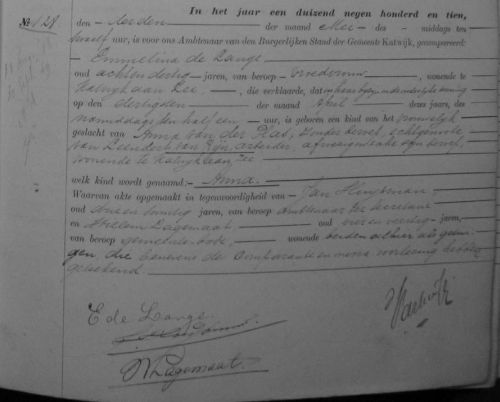 In het jaar een duizend negen honderd en tien,
№ 128. den - derden der maand Mei - des - middags ten
twaalf uur, is voor ons Ambtenaar van den Burgerlijken Stand der Gemeente Katwijk, gecompareerd:
Emmelina de Lange
oud achtendertig - jaren, van beroep - vroedvrouw, wonende te
Katwijk aan Zee - die verklaarde, dat in hare
op den dertigsten der maand April dezes jaars, des
namiddags ten half een - uur, is geboren een kind van het vrouwelijk
geslacht van Anna van der Plas, zonder beroep, echtgenoote
van Leendert van Rijn, arbeider,
wonende te Katwijk aan Zee
welk kind wordt genaamd: - Anna. -
Waarvan akte opgemaakt in tegenwoordigheid van - Jan
oud drie en twintig jaren, van beroep ambtenaar ter secretarie
en Willem Lagemaat oud vier en veertig - jaren,
van beroep gemeentebode, wonende beiden alhier als getui-
gen, die benevens de Comparante en mij na voorlezing hebben
geteekend.
E de Lange.
W Lagemaat.